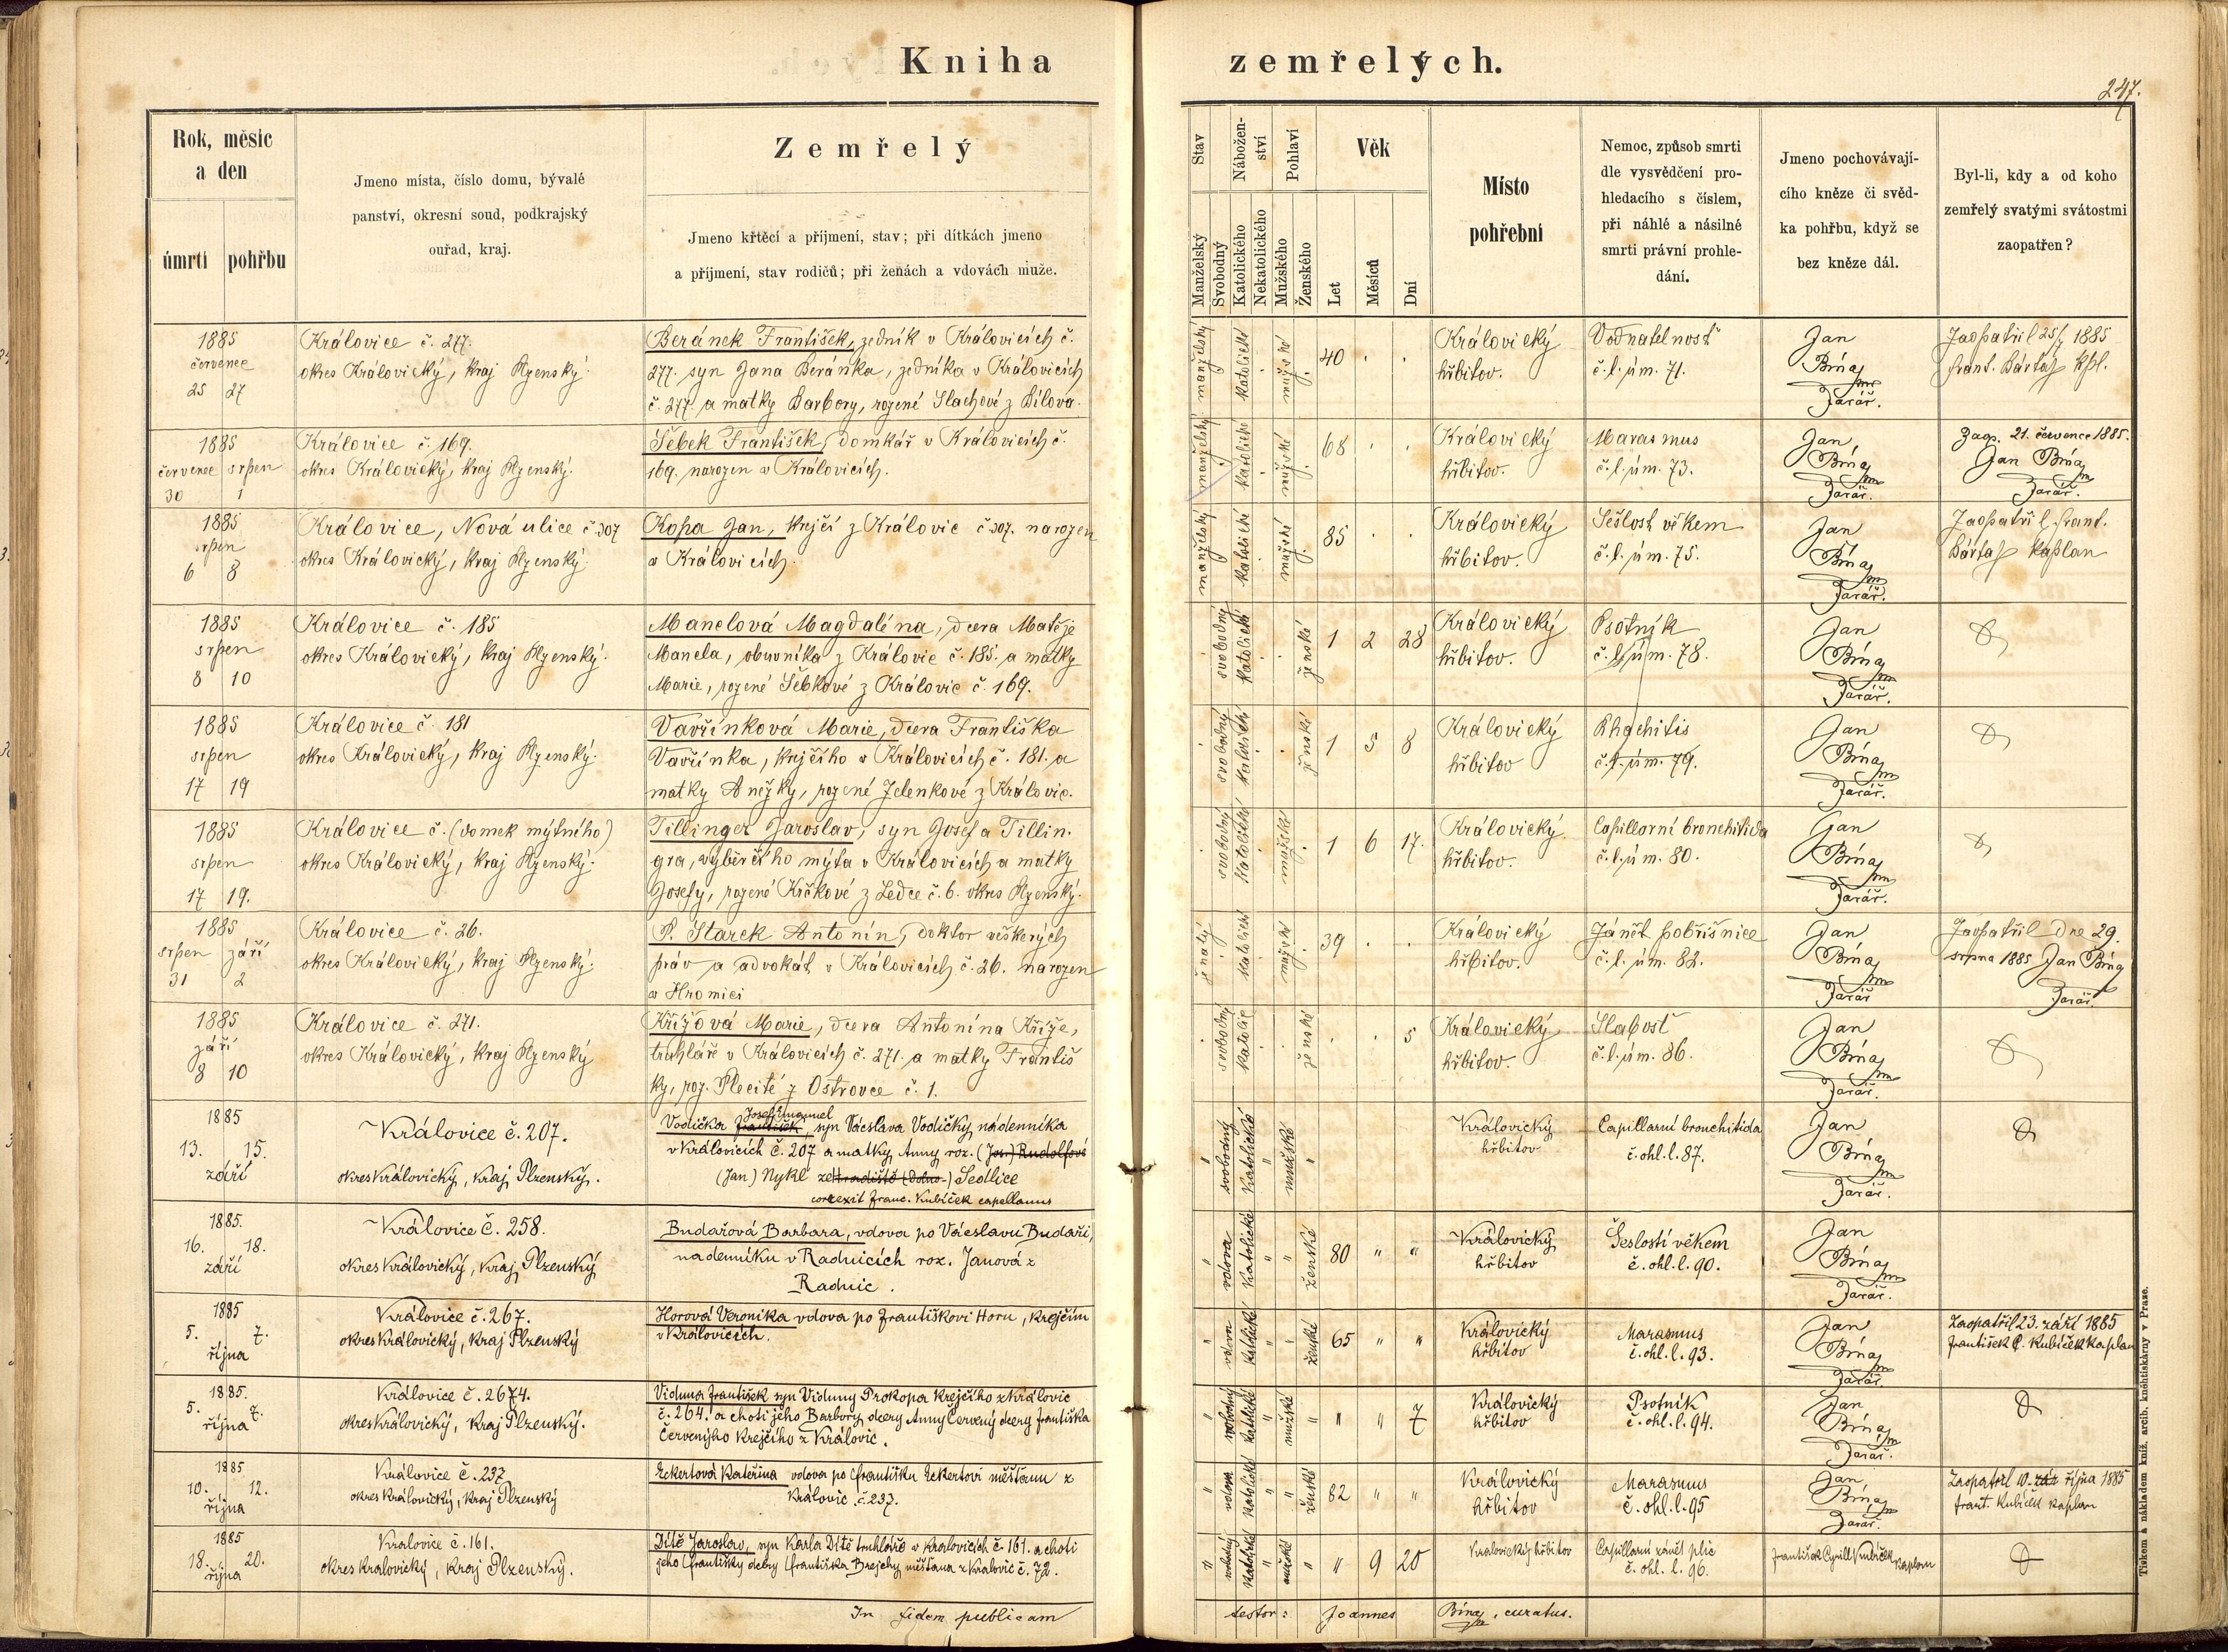 Kniha zemřelých.
247.
Rok, měsíc a den
úmrtí pohřbu
Jmeno místa, číslo domu, bývalé
panství, okresní soud, podkrajský
ouřad, kraj.
Zemřelý
Jmeno křtěcí a příjmení, stav; při dítkách jmeno
a příjmení, stav rodičů; při ženách a vdovách muže.
Stav
Manželský
Svobodný
Nábožen-
ství
Katolického
Nekatolického
Pohlaví
Mužského
Ženského
Věk
Let
Měsíců
Dní
Místo
pohřební
Nemoc, způsob smrti
dle vysvědčení pro-
hledacího s číslem,
při náhlé a násilné
smrti právní prohle-
dání.
Jmeno pochovávají-
cího kněze či svěd-
ka pohřbu, když se
bez kněze dál.
Byl-li, kdy a od koho
zemřelý svatými svátostmi
zaopatřen?
1885
červenec
25 27
Královice č. 277.
okres Královický, kraj Plzenský.
Beránek František, zedník v Královicích č.
277. syn Jana Beránka, zedníka v Královicích
č. 277. a matky Barbory, rozené Slachové z Bílova.
manželský
katolické
mužské
40
Královický
hřbitov.
Vodnatelnost
č. l. úm. 71.
Jan
Brna
farář.
Zaopatřil 25/7 1885
frant. Bárta kpl.
1885
červenec srpen
30 1
Královice č. 169.
okres Královický, kraj Plzenský.
Šebek František, domkář v Královicích č.
169. narozen v Královicích.
manželský
katolické
mužské
68
Královický
hřbitov.
Marasmus
č. l. úm. 73.
Jan
Brna
farář.
Zaop. 21. července 1885.
Jan Brna
farář.
1885
srpen
6 8
Královice, Nová ulice č. 307
okres Královický, kraj Plzenský.
Kopa Jan, krejčí z Královic č. 307. narozen
v Královicích.
manželský
katolické
mužské
85
Královický
hřbitov.
Sešlost věkem
č. l. úm. 75.
Jan
Brna
farář.
Zaopatřil frant.
Bárta kaplan
1885
srpen
8 10
Královice č. 185
okres Královický, kraj Plzenský.
Manelová Magdaléna, dcera Matěje
Manela, obuvníka z Královic č. 185. a matky
Marie, rozené Šebkové z Královic č. 169.
svobodný
katolické
ženské
1 2 28
Královický
hřbitov.
Psotník
č. l. úm. 78.
Jan
Brna
farář.
1885
srpen
17 19
Královice č. 181
okres Královický, kraj Plzenský.
Vavřínková Marie, dcera Františka
Vavřínka, krejčího v Královicích č. 181. a
matky Anežky, rozené Jelenkové z Královic.
svobodný
katolické
ženské
1 5 8
Královický
hřbitov
Rhachitis
č. l. úm. 79.
Jan
Brna
farář.
1885
srpen
17 19.
Královice č. (domek mýtného)
okres Královický, kraj Plzenský.
Tillinger Jaroslav, syn Josefa Tillin-
gra, výběrčího mýta v Královicích a matky
Josefy, rozené Krčkové z Ledce č. 6. okres Plzenský.
svobodný
katolické
mužské
1 6 17.
Královický
hřbitov.
Capillarní bronchitida
č. l. úm. 80.
Jan
Brna
farář.
1885
srpen září
31 2
Královice č. 26.
okres Královický, kraj Plzenský.
P. Starek Antonín, doktor veškerých
práv a advokát v Královicích č. 26. narozen
v Hromici
ženatý
katolické
mužské
39
Královický
hřbitov.
Zánět pobřišnice
č. l. úm. 82.
Jan
Brna
farář
Zaopatřil dne 29.
srpna 1885 Jan Brna
farář.
1885
září
8 10
Královice č. 271.
okres Královický, kraj Plzenský
Křížová Marie, dcera Antonína Kříže,
truhláře v Královicích č. 271. a matky Františ
ky, roz. Plecité z Ostrovce č. 1.
svobodný
katolic
ženské
5
Královický
hřbitov.
Slabost
č. l. úm. 86.
Jan
Brna
farář.
1885
13. 15.
září
Královice č. 207.
okres Královický, kraj Plzenský.
Josef Emanuel
Vodička František, syn Václava Vodičky, nádenníka
v Královicích č. 207 a matky Anny roz. (Jos.) Rudolfové
(Jan) Nykl ze Hradiště (Dolno-) Sedlice
correxit Franc. Kubíček capellanus
svobodný
katolické
mužské
Královický
hřbitov
Capillarní bronchitida
č. ohl. l. 87.
Jan
Brna
farář.
1885.
16. 18.
září
Královice č. 258.
okres Královický, kraj Plzenský
Budařová Barbara, vdova po Václavu Budaři,
nadenníku v Radnicích roz. Janová z
Radnic.
vdova
katolické
ženské
80 " "
Královický
hřbitov
Sešlostí věkem
č. ohl. l. 90.
Jan
Brna
farář.
1885
5. 7.
října
Královice č. 267.
okres Královický, kraj Plzenský
Horová Veronika vdova po Františkovi Horu, krejčím
v Královicích.
vdova
katolické
ženské
65 " "
Královický
hřbitov
Marasmus
č. ohl. l. 93.
Jan
Brna
farář.
Zaopatřil 23. září 1885
František C. Kubíček kaplan
1885.
5. 7.
října
Královice č. 2674.
okres Královický, kraj Plzenský.
Viduna František syn Viduny Prokopa krejčího z Královic
č. 264. a choti jeho Barbory dcery Anny Červený dcery Františka
Červenýho krejčího z Královic.
svobodný
katolické
mužské
" " 7
Královický
hřbitov
Psotník
č. ohl. l. 94.
Jan
Brna
farář.
1885
10. 12.
října
Královice č. 237
okres Královický, kraj Plzenský
Eckertová Kateřina vdova po Františku Eckertovi měšťanu z
Královic. č. 237.
vdova
katolické
ženské
82 " "
Královický
hřbitov
Marasmus
č. ohl. l. 95
Jan
Brna
farář.
Zaopatřil 10. října 1885
frant. Kubíček kaplan
1885
18. 20.
října
Kralovice č. 161.
okres Kralovický, kraj Plzenský.
Dítě Jaroslav, syn Karla Dítě truhláře v Kralovicích č. 161. a choti
jeho Františky dcery Františka Brejchy měšťana z Kralovic č. 72.
svobodný
katolické
mužské
" 9 20
Kralovický hřbitov
Capillarní zánět plic
č. ohl. l. 96.
František Cyrill Kubíček kaplan
In fidem publicam testor: Joannes Brna, curatus.
Tiskem a nákladem kníž. arcib. knihtiskárny v Praze.